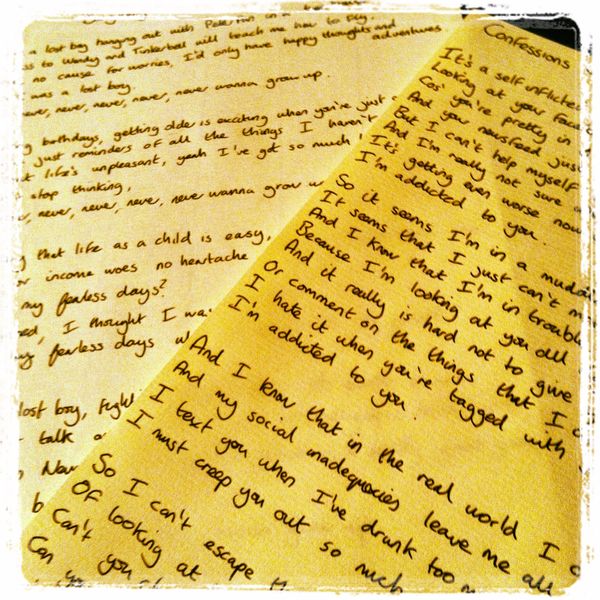 a lost boy hanging out with Peter Pan on a
to Wendy and Tinkerbell will teach me how to fly.
no cause for worries, I'd only have happy thoughts and adventures
was a lost boy.
never, never, never, never, never wanna grow up.
birthdays, getting older is exciting when you're just
just reminders of all the things I haven't
life's unpleasant, yeah I've got so much
stop thinking,
never, never, never, never, never wanna grow
that life as a child is easy,
income woes no heartache
my fearless days?
I thought I
fearless days
lost boy,
talk
Confessions
It's a self
Looking at your
Cos' you're pretty in
And your newsfeed just
But I can't help myself
And I'm really not sure
It's getting even worse now
I'm addicted to you.
So it seems I'm in a
It seems that I just can't
And I know that I'm in
Because I'm looking at you all
And it really is hard not to give
Or comment on the things that I
I hate it when you're tagged with
I'm addicted to you.
And I know that in the real world I
And my social inadequacies leave me all
I text you when I've drunk too
I must creep you out so much
So I can't escape
Of looking at
Can't you
Can